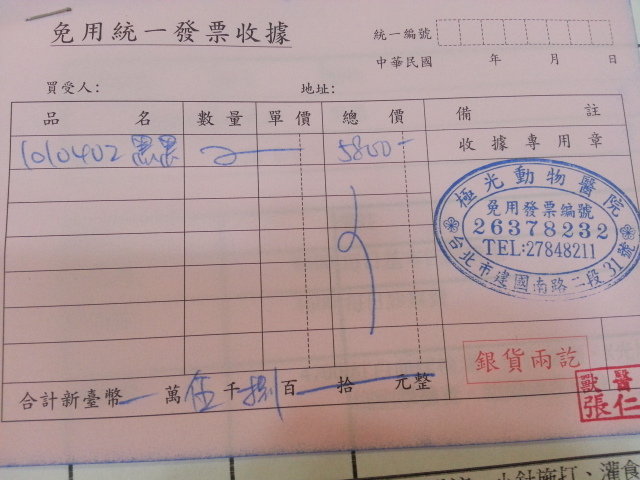 免用統一發票收據
統一編號
中華民國 年 月 日
買受人: 地址:
品 名 數量 單價 總 價 備 註
收據專用章
1010402 黑黑 5800-
極光動物醫院
免用發票編號
26378232
TEL:27848211
台北市建國南路二段31號
銀貨兩訖
合計新臺幣 萬 伍 千 捌 百 拾 元整
獸醫
張仁